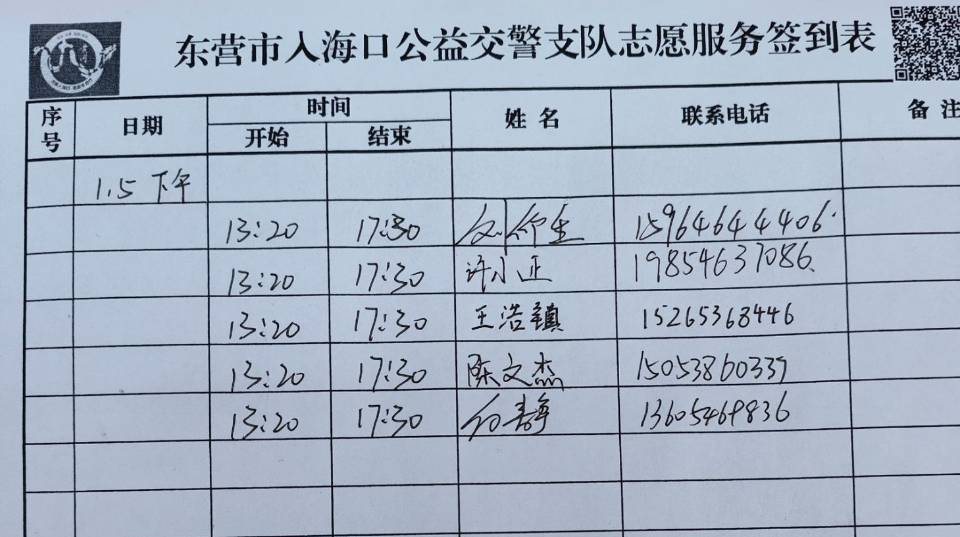 东营市入海口公益交警支队志愿服务签到表
序号 日期 时间 姓名 联系电话 备注
开始 结束
1.5 下午
13:20 17:30 15964644406
13:20 17:30 许小正 19854637086
13:20 17:30 王浩镇 15265368446
13:20 17:30 陈文杰 15053860339
13:20 17:30 13605469836